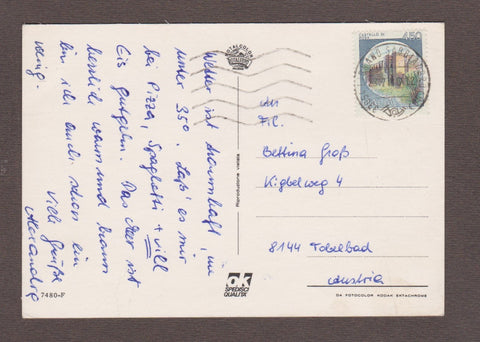 Wetter ist traumhaft, im
unter 35°. Laß' es mir
bei Pizza, Spaghetti + viel
Eis gutgehn. Das Meer ist
herrlich warm und braun
bin ich auch schon ein
wenig.
Viele Grüße
Alexandra
TOTALCOLOR
An
Frl.
Bettina Groß
Kigbelweg 4
8144 Tobelbad
Austria
CASTELLO DI
450
ok
SPEDISCI
QUALITÀ
7480-F
DA FOTOCOLOR KODAK EKTACHROME